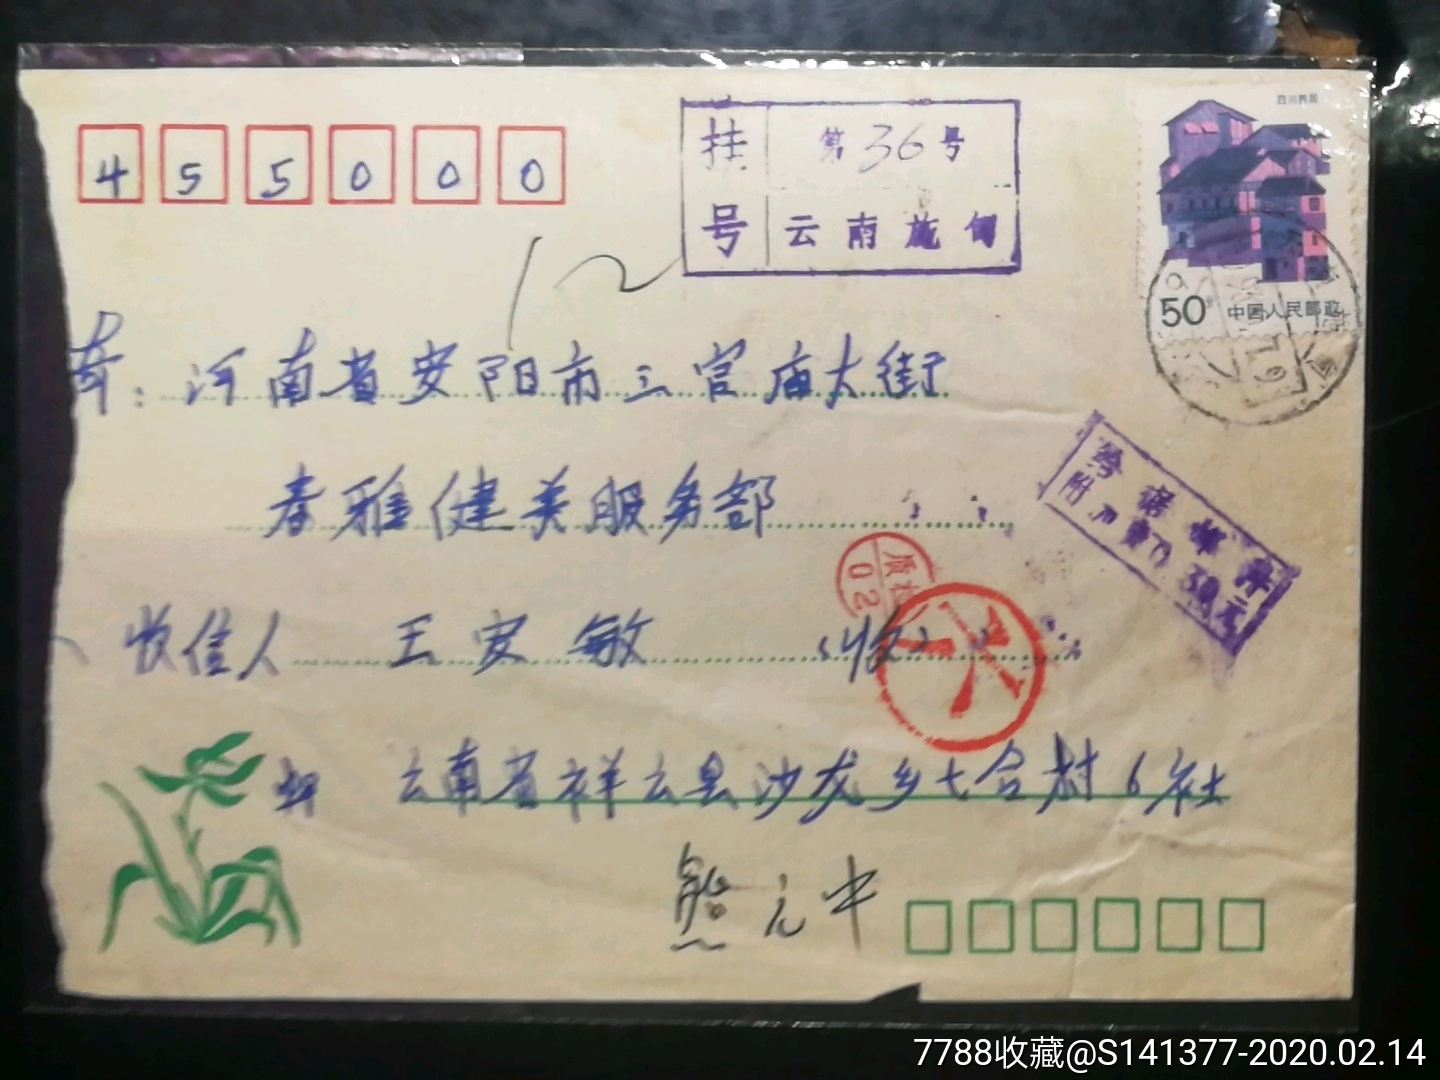 455000
挂号
第36号
云南施甸
四川民居
50分 中国人民邮政
寄：河南省安阳市三官庙大街
春雅健美服务部
附加费
30元
质检
02
收信人 王安敏 （收）
云南省祥云县沙龙乡七合村6社
熊元中
7788收藏@S141377-2020.02.14